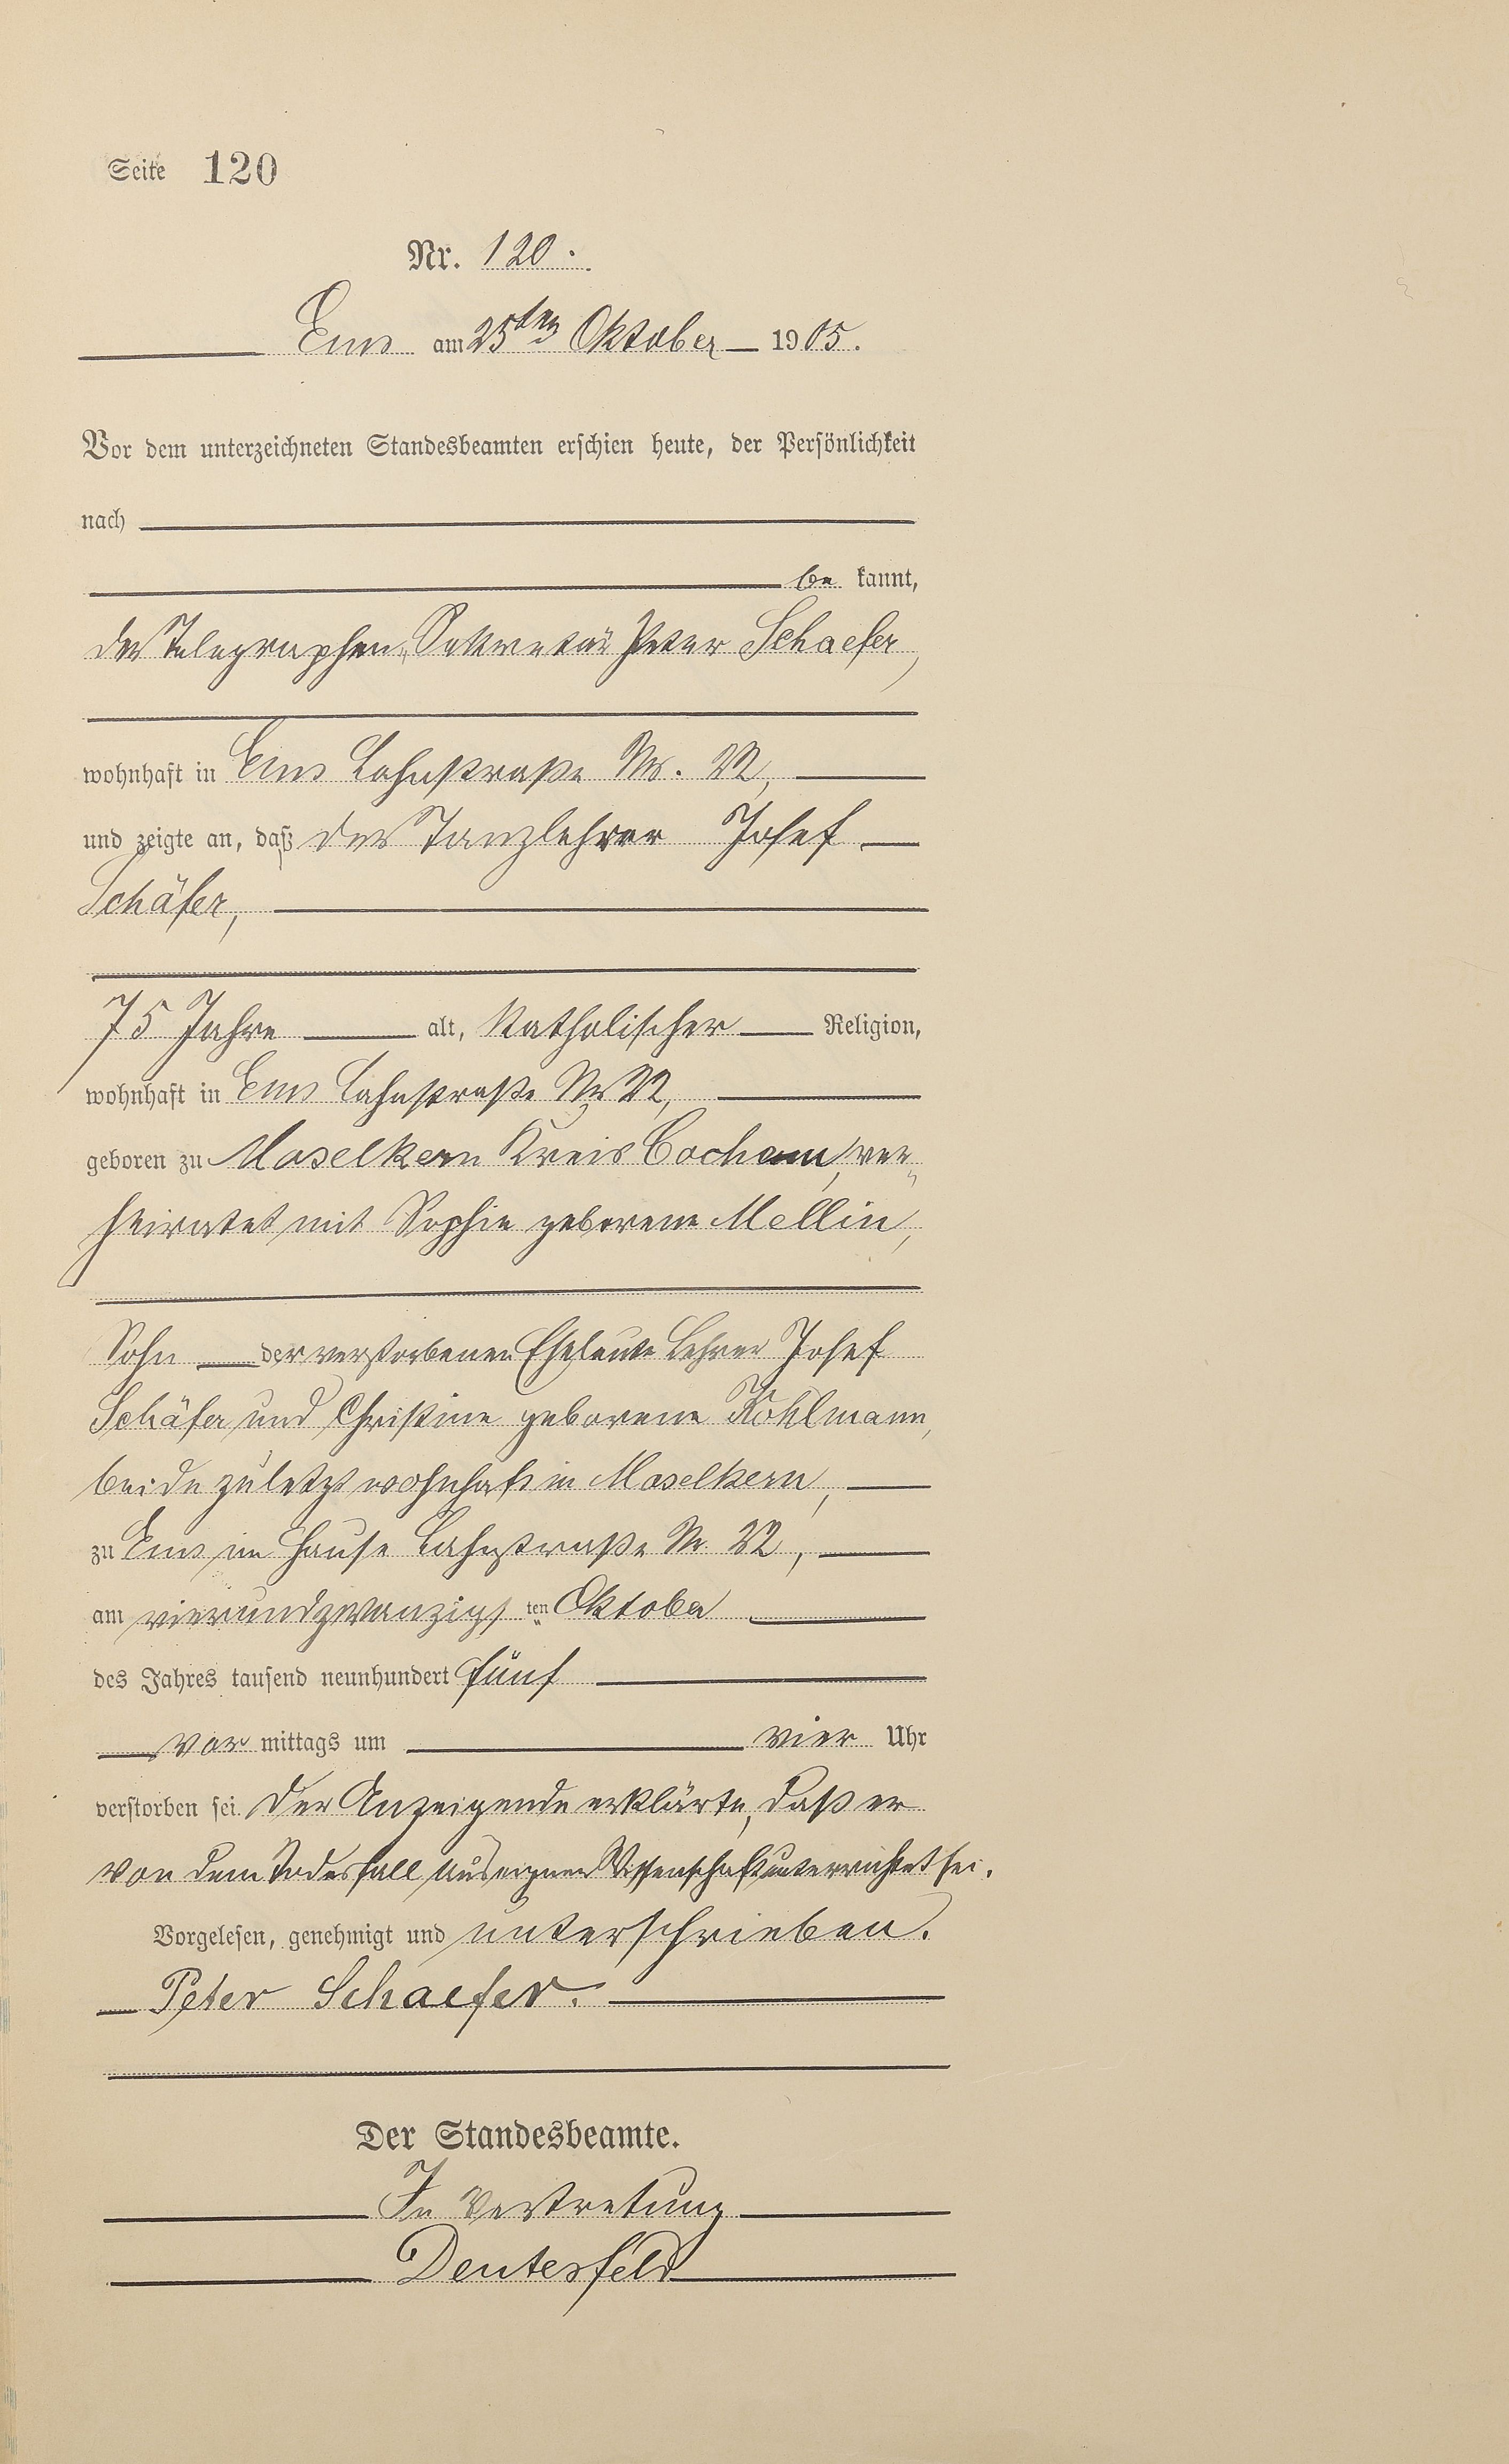 Seite 120
Nr. 120.
Ems am 25ten Oktober 1905.
Vor dem unterzeichneten Standesbeamten erschien heute, der Persönlichkeit
nach
be kannt,
der Telegraphen-Sekretär Peter Schaefer,
wohnhaft in Ems Lahnstraße Nr. 22,
und zeigte an, daß der Tanzlehrer Josef
Schäfer,
75 Jahre alt, katholischer Religion,
wohnhaft in Ems Lahnstraße Nr 22,
geboren zu Moselkern Kreis Cochem, ver-
heiratet mit Sophie geborene Mellin,
Sohn der verstorbenen Eheleute Lehrer Josef
Schäfer und Christine geborene Kohlmann,
beide zuletzt wohnhaft in Moselkern,
zu Ems im Hause Lahnstraße Nr. 22,
am vierundzwanzigsten Oktober
des Jahres tausend neunhundert fünf
vor mittags um vier Uhr
verstorben sei. Der Anzeigende erklärte, daß er
von dem Todesfall aus eigner Wissenschaft unterrichtet sei.
Vorgelesen, genehmigt und unterschrieben.
Peter Schaefer.
Der Standesbeamte.
In Vertretung
Deutesfeld